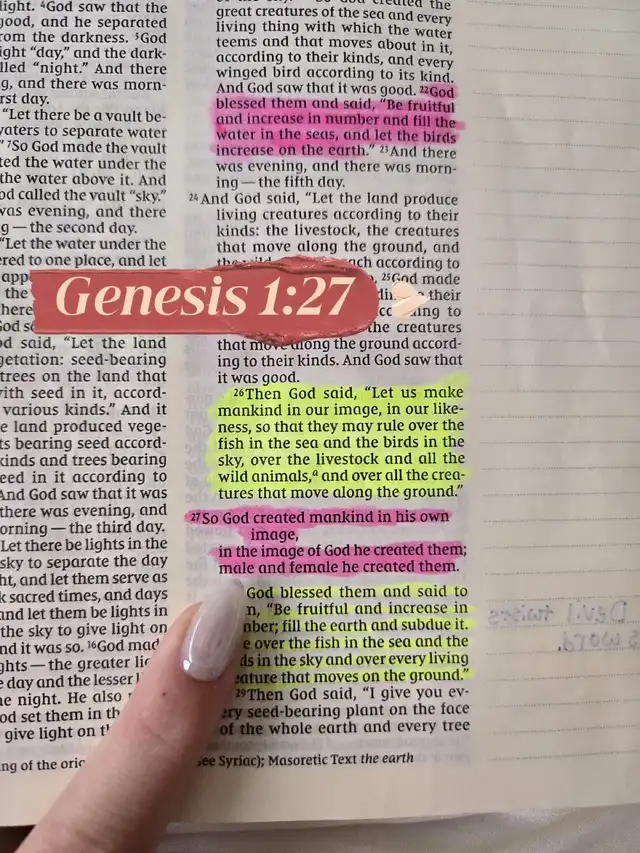 light. ⁴God saw that the
good, and he separated
rom the darkness. ⁵God
ight “day,” and the dark-
lled “night.” And there
g, and there was morn-
rst day.
“Let there be a vault be-
vaters to separate water
⁷So God made the vault
ted the water under the
the water above it. And
od called the vault “sky.”
was evening, and there
g — the second day.
“Let the water under the
ered to one place, and let
app
the
here
God s
od said, “Let the land
getation: seed-bearing
trees on the land that
with seed in it, accord-
various kinds.” And it
e land produced vege-
ts bearing seed accord-
kinds and trees bearing
eed in it according to
And God saw that it was
there was evening, and
orning — the third day.
Let there be lights in the
sky to separate the day
ht, and let them serve as
k sacred times, and days
and let them be lights in
the sky to give light on
nd it was so. ¹⁶God made
ghts — the greater lig
e day and the lesser l
he night. He also
od set them in th
give light on t
Genesis 1:27
great creatures of the sea and every
living thing with which the water
teems and that moves about in it,
according to their kinds, and every
winged bird according to its kind.
And God saw that it was good. ²²God
blessed them and said, “Be fruitful
and increase in number and fill the
water in the seas, and let the birds
increase on the earth.” ²³And there
was evening, and there was morn-
ing — the fifth day.
²⁴And God said, “Let the land produce
living creatures according to their
kinds: the livestock, the creatures
that move along the ground, and
the wild each according to
²⁵God made
their
to
the creatures
that move along the ground accord-
ing to their kinds. And God saw that
it was good.
²⁶Then God said, “Let us make
mankind in our image, in our like-
ness, so that they may rule over the
fish in the sea and the birds in the
sky, over the livestock and all the
wild animals,ᵃ and over all the crea-
tures that move along the ground.”
²⁷So God created mankind in his own
image,
in the image of God he created them;
male and female he created them.
God blessed them and said to
m, “Be fruitful and increase in
nber; fill the earth and subdue it.
e over the fish in the sea and the
ds in the sky and over every living
eature that moves on the ground.”
²⁹Then God said, “I give you ev-
ery seed-bearing plant on the face
of the whole earth and every tree
ng of the orig
see Syriac); Masoretic Text the earth
Devil twists
s word.